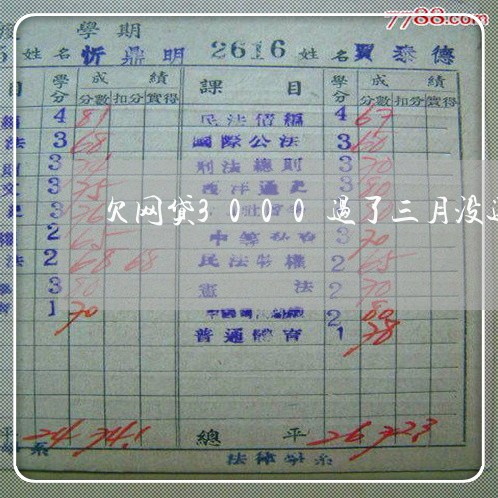 7788.com
學期
姓名 忻鼎明 2616 姓名 賈泰德
目 學分 成績 課目 學分 成績
分數 扣分 實得 分數 扣分 實得
4 81 民法債編 4 67
法 3 68 國際公法 3 60
3 刑法總則 3 70
3 75 西洋通史 3 80
3
欠网贷3000过了三月没还
2 65 3 70
法 2 68 68 民法物權 2 65
3 80 憲法 2 70
1 70 2 80
普通體育 1 78
平 24 74.1 總平 26 72.3
系 法律學系